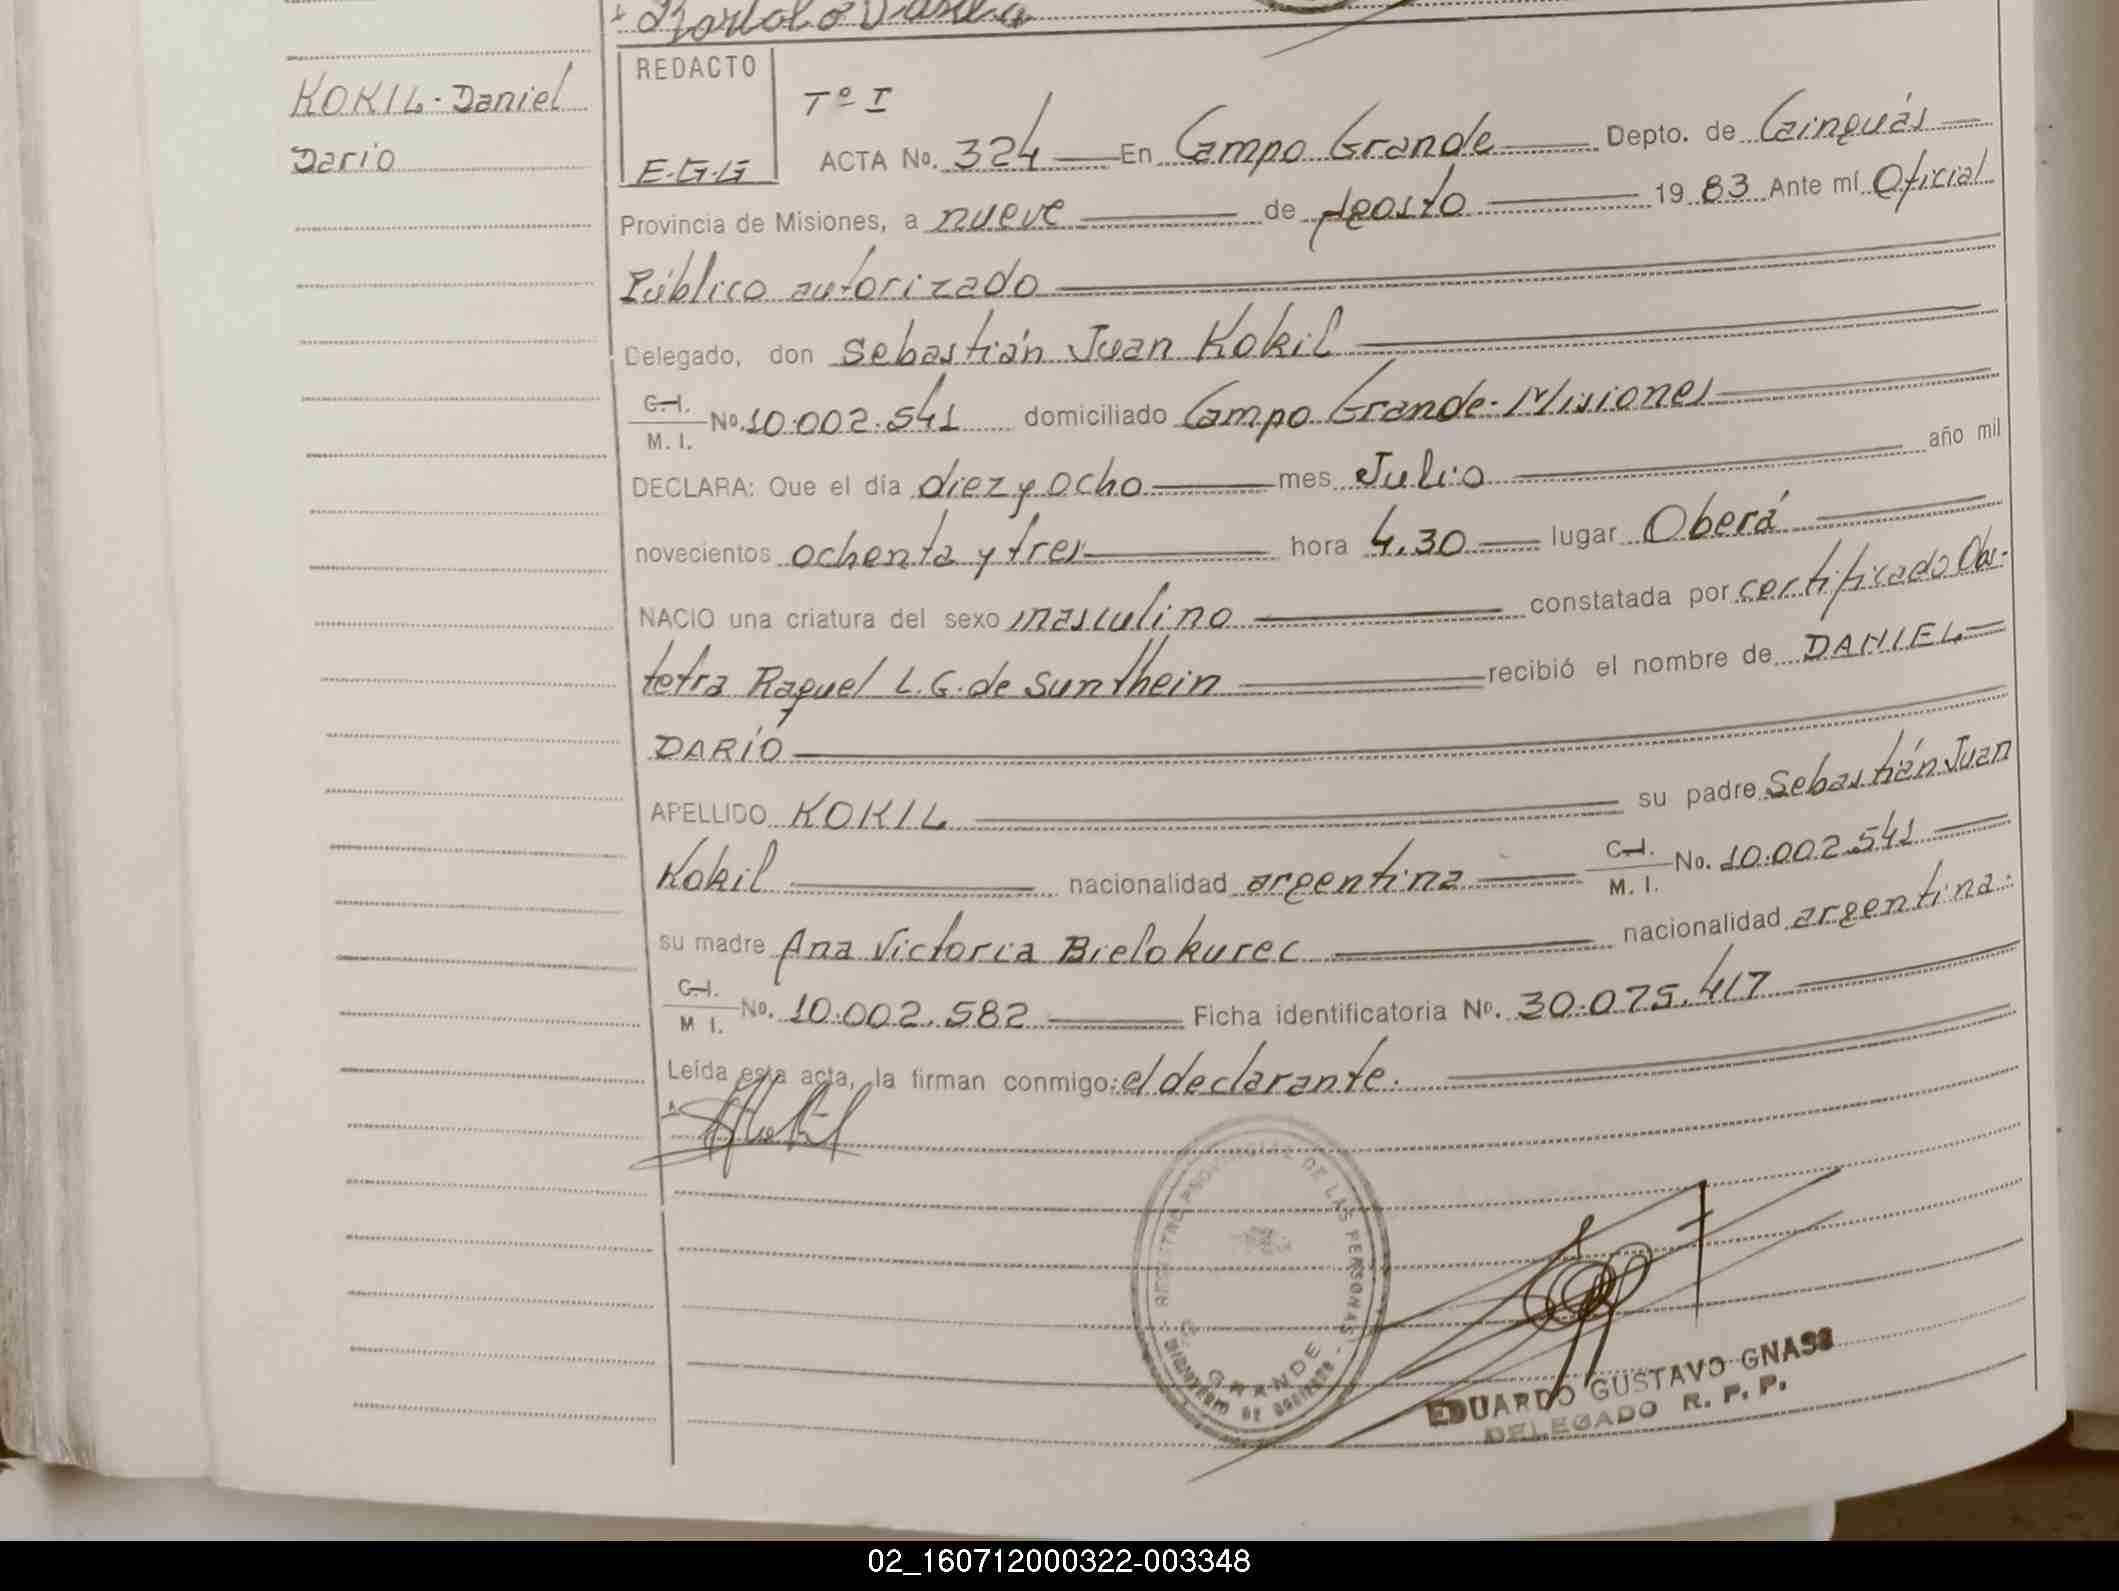 KOKIL-Daniel
Darío
REDACTO
E.G.G
Tº I
ACTA No. 324 En Campo Grande Depto. de Cainguás
Provincia de Misiones, a nueve de Agosto 19 83 Ante mí Oficial
Público autorizado
Delegado, don Sebastián Juan Kokil
C.I.
M. I. No. 10.002.541 domiciliado Campo Grande-Misiones
DECLARA: Que el día diez y ocho mes Julio año mil
novecientos ochenta y tres hora 4.30 lugar Oberá
NACIO una criatura del sexo masculino constatada por certificado Obs-
tetra Raquel L.G. de Sunthein recibió el nombre de DANIEL
DARÍO
APELLIDO KOKIL su padre Sebastián Juan
Kokil nacionalidad argentina C.I.
M. I. No. 10.002.541
su madre Ana Victoria Bielokurec nacionalidad argentina.
C.I.
M I. No. 10.002.582 Ficha identificatoria No. 30.075.417
Leída esta acta, la firman conmigo: el declarante.
REGISTRO PROVINCIAL DE LAS PERSONAS
GRANDE
EDUARDO GUSTAVO GNASS
DELEGADO R. P. P.
02_160712000322-003348